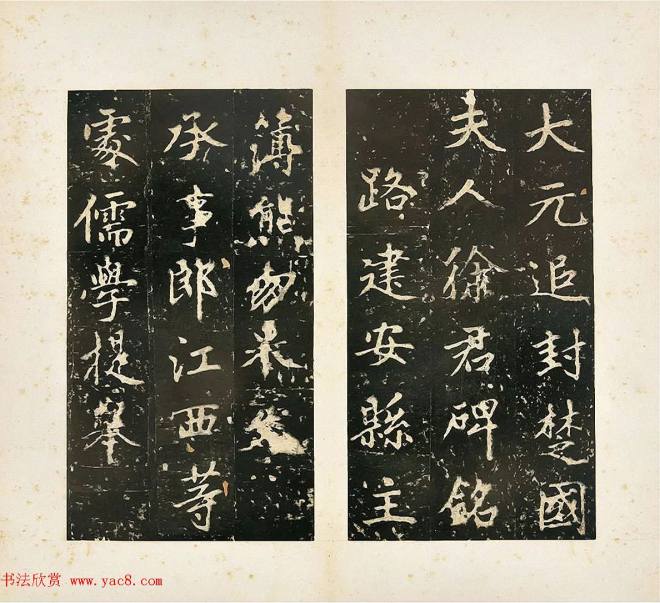 大元追封楚國
夫人徐君碑銘
路建安縣主
簿熊勿本
承事郎江西等
處儒學提舉
书法欣赏 www.yac8.com